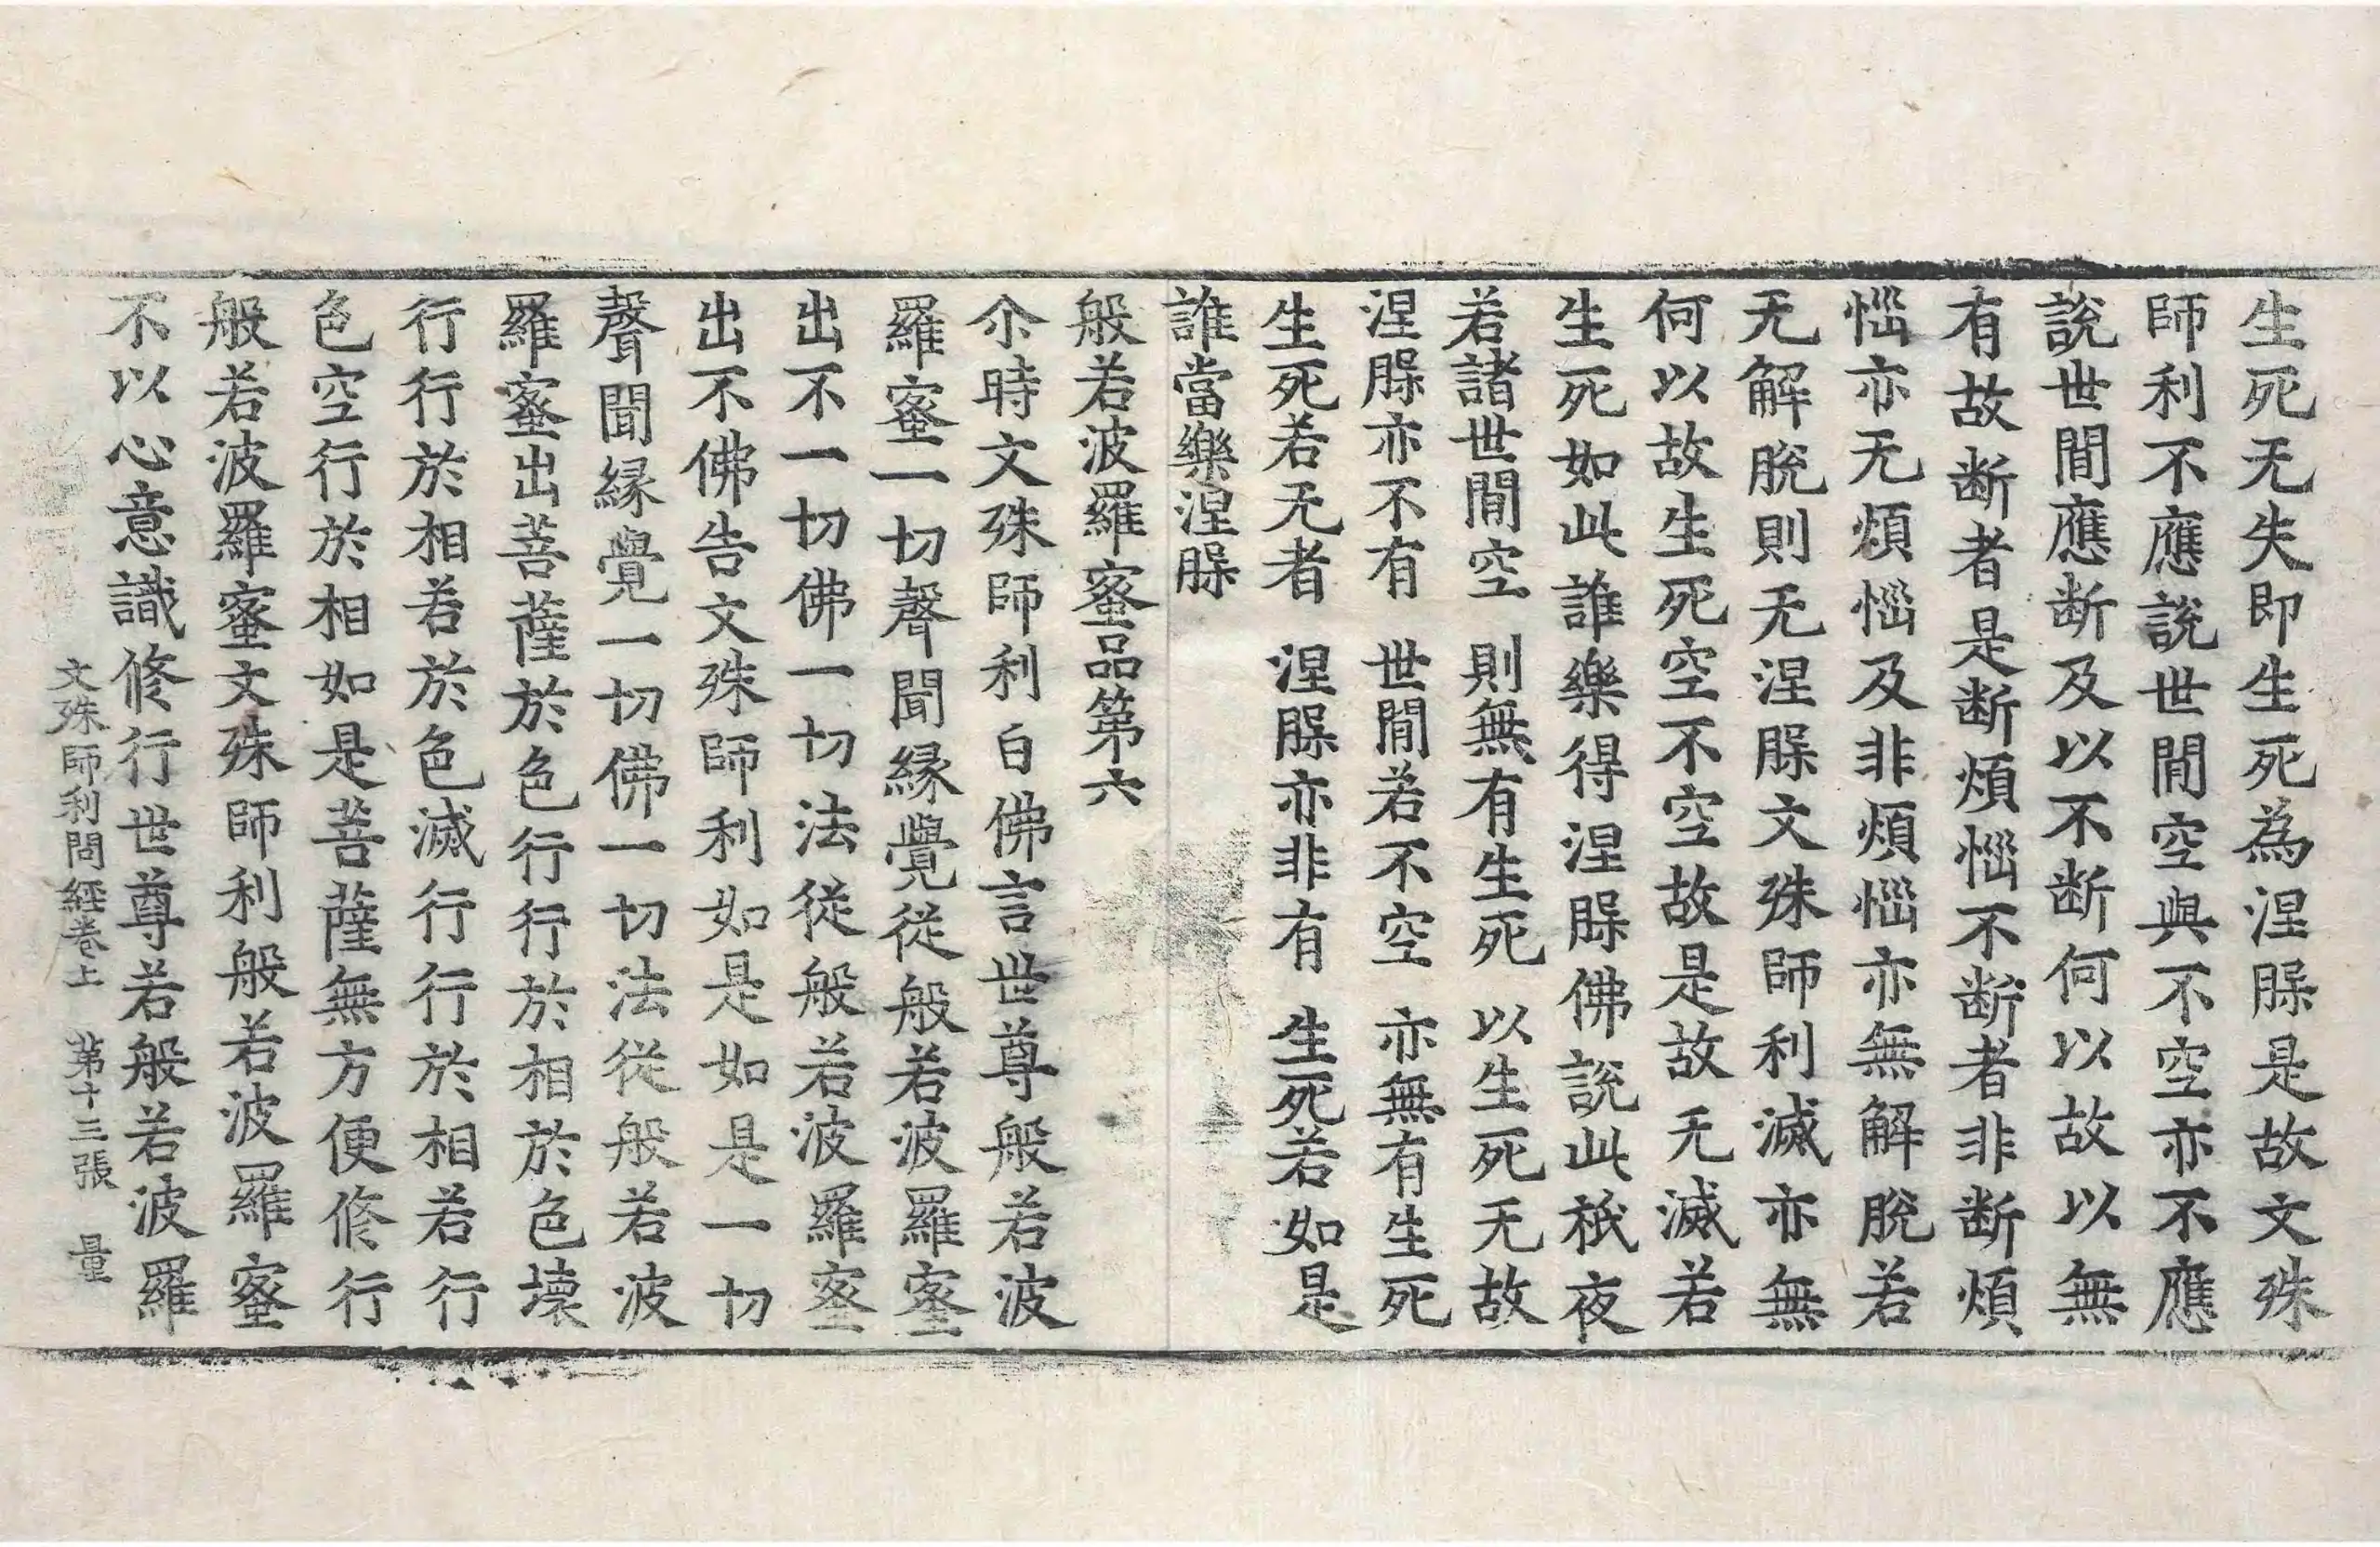 生死无失即生死為涅槃是故文殊
師利不應說世間空與不空亦不應
說世間應断及以不断何以故以無
有故断者是断煩惱不断者非断煩
惱亦无煩惱及非煩惱亦無解脫若
无解脫則无涅槃文殊師利滅亦無
何以故生死空不空故是故无滅若
生死如此誰樂得涅槃佛說此秖夜
若諸世間空　則無有生死　以生死无故
涅槃亦不有　世間若不空　亦無有生死
生死若无者　涅槃亦非有　生死若如是
誰當樂涅槃
般若波羅蜜品第六
尒時文殊師利白佛言世尊般若波
羅蜜一切聲聞縁覺從般若波羅蜜
出不一切佛一切法從般若波羅蜜
出不佛告文殊師利如是如是一切
聲聞縁覺一切佛一切法從般若波
羅蜜出菩薩於色行行於相於色壞
行行於相若於色滅行行於相若行
色空行於相如是菩薩無方便修行
般若波羅蜜文殊師利般若波羅蜜
不以心意識修行世尊若般若波羅
文殊師利問經卷上　第十三張　量